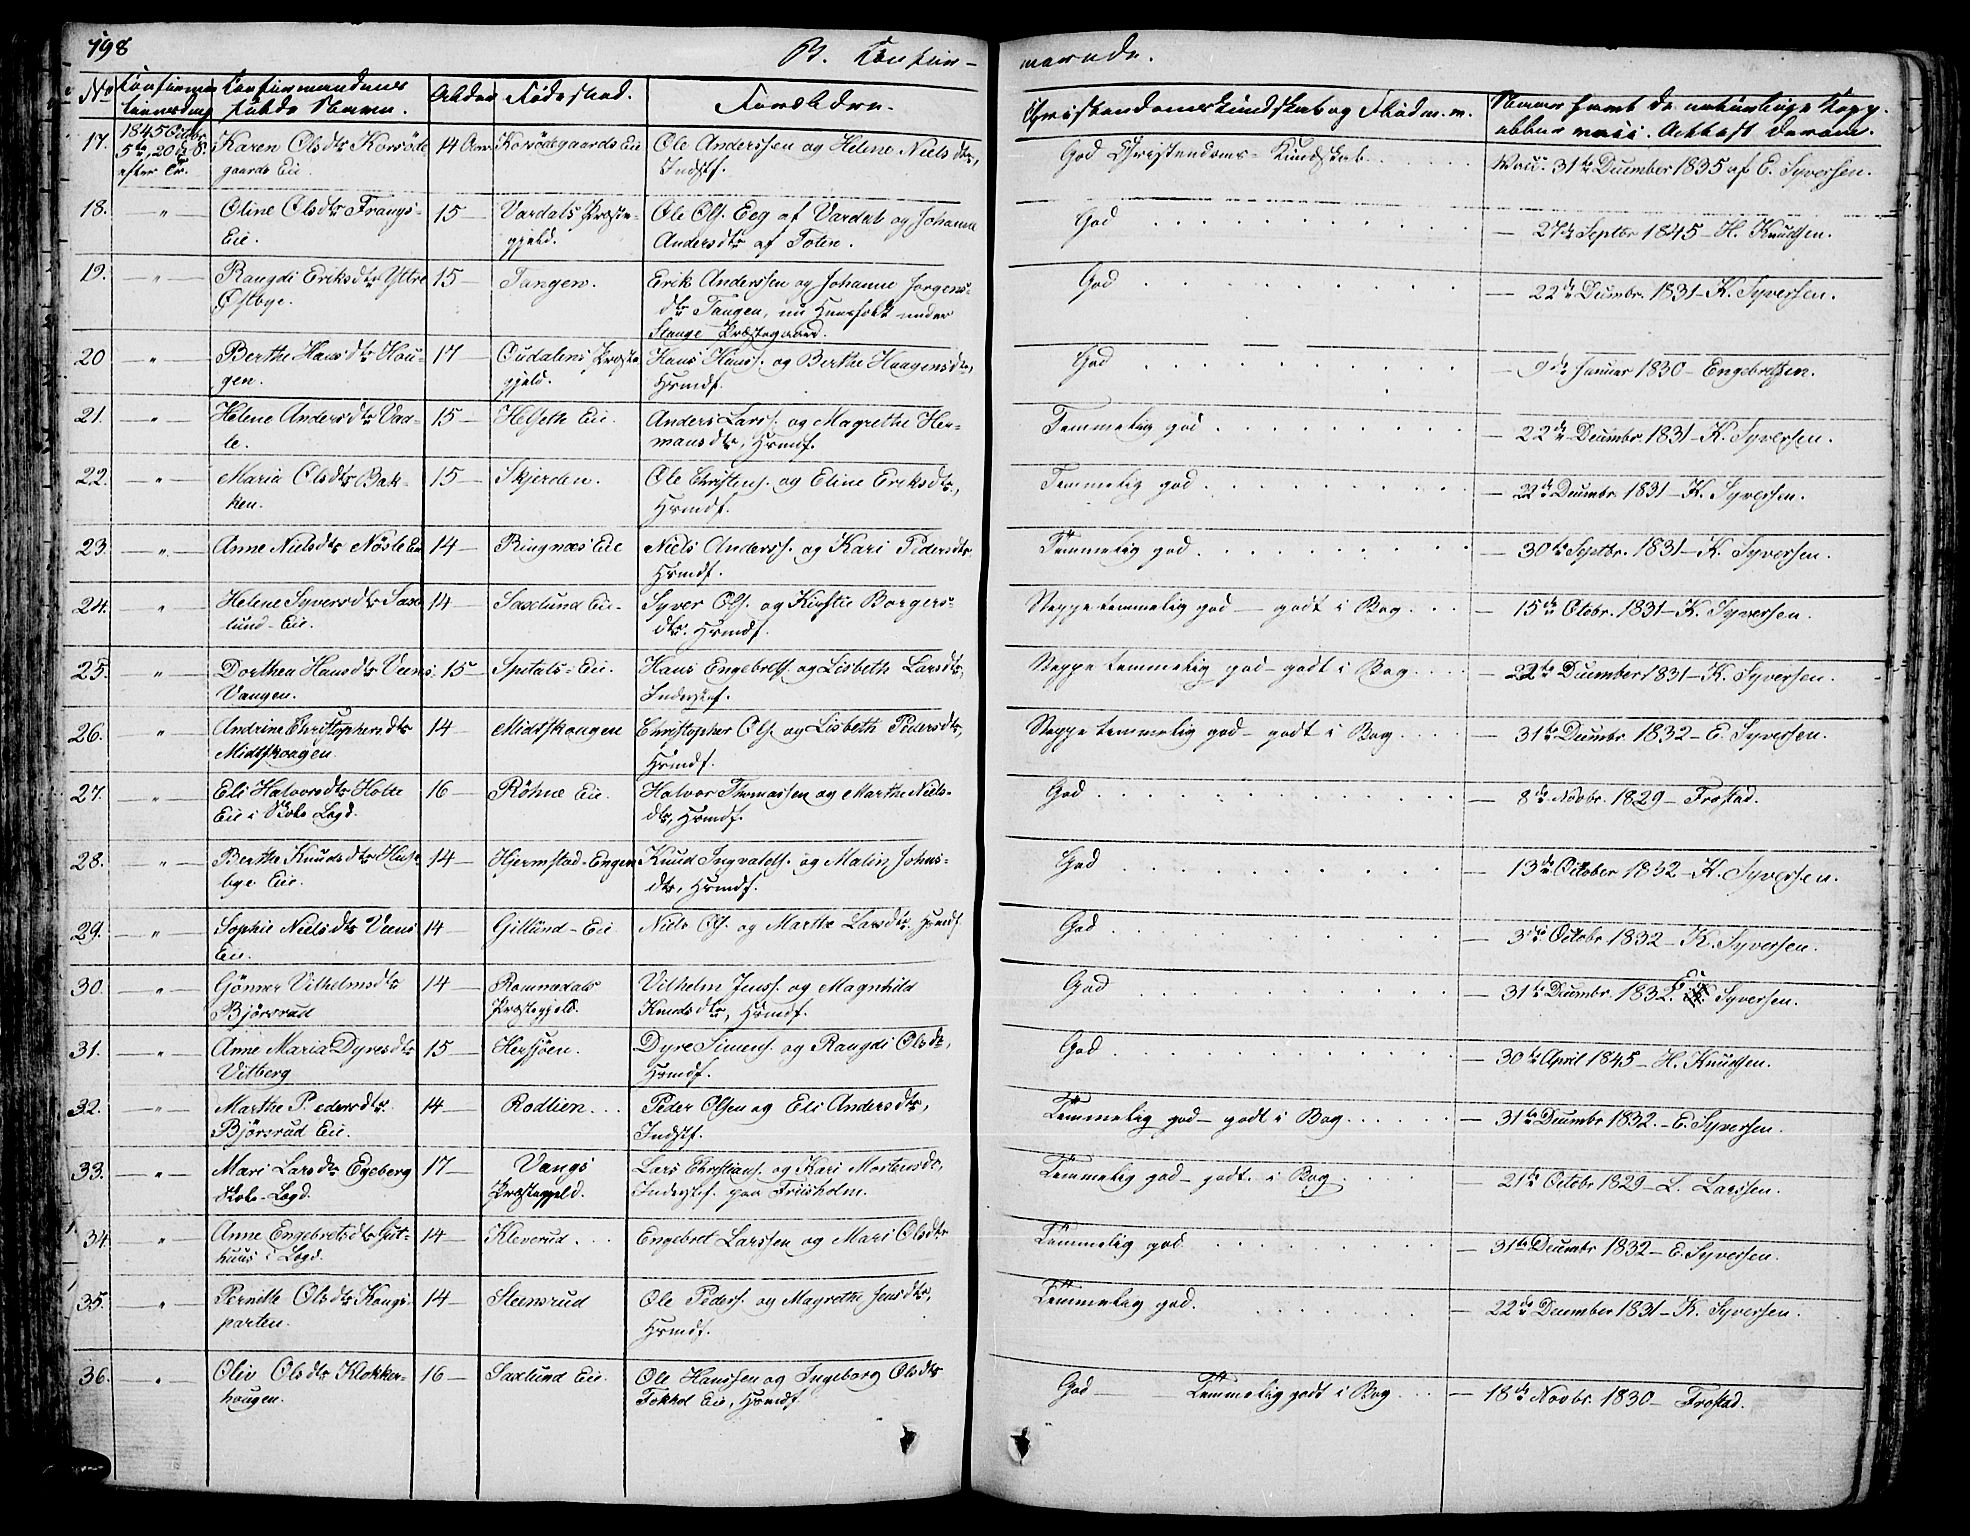 198
B. Confir-
marede.
No
Confirma-
tionsdag
Confirmandens
fulde Navn.
Alder
Fødested.
Forældre.
Christendomskundskab og Flid m. m.
Naar samt de naturlige Kopp.
abbur vacc. Attest derom.
17.
1845 Octbr.
5te, 20de S.
efter Tr.
Karen Olsdtr Korsøde
gaards Eie
14 Aar
Korsødegaards Eie
Ole Anderssen og Helene Nielsdtr,
Indstf.
God Christendoms-Kundskab
Vacc. 31te December 1835 af E. Syversen.
18.
Oline Olsdtr Frangs-
Eie.
15
Vardals Præste-
gjeld.
Ole Ols. Eeg af Vardal og Johanne
Andersdtr af Toten.
God
27de Septbr 1845 - H. Knudsen.
19.
Rangdi Eriksdtr Yttre
Østbye.
15
Tangen.
Erik Anderssen og Johanne Jørgens-
dtr Tangen, nu Huusfolk under
Stange Præstegaard.
God
22de Decembr. 1831 - K. Syversen.
20
Berthe Hansdtr Hou-
gen.
17
Oudalens Præste
gjeld.
Hans Hanss. og Berthe Haagensdtr,
Hsmdf.
God
9de Januar 1830 - Engebretsen.
21.
Helene Andersdtr Vaa-
le.
15
Helseth Eie.
Anders Larss. og Magrethe Her-
mansdtr, Hsmdf.
Temmelig god
22de Decembr. 1831 - K. Syversen.
22.
Maria Olsdtr Bak-
ken.
15
Skjerden.
Ole Christens. og Eline Eriksdtr,
Hsmdf.
Temmelig god
22de Decembr. 1831 - K. Syversen.
23.
Anne Nielsdtr Nøsle Eie
14
Ringnæs Eie
Niels Anderss. og Kari Pedersdtr
Hsmdf.
Temmelig god
30te Septbr. 1831 - K. Syversen.
24.
Helene Syversdtr Saxe
lund-Eie.
14
Saxlund Eie
Syver Ols. og Kirstie Borgers-
dtr. Hsmdf.
Neppe temmelig god - godt i Bog
15de Octobr. 1831 - K. Syversen.
25.
Dorthea Hansdtr Veens
Vangen.
15
Spitals-Eie.
Hans Engebrets. og Lisbeth Larsdtr,
Inderstf.
Neppe temmelig god - godt i Bog
22de December 1831 - K. Syversen.
26.
Andrine Christophersdtr
Midtskougen
14
Midtskougen
Christopher Ols. og Lisbeth Pedersdtr,
Hsmdf.
Neppe temmelig god - godt i Bog
31te Decembr. 1832 - E. Syversen.
27.
Eli Halvorsdtr Holte
Eie i Lægd.
16
Røhne Eie.
Halvor Thomassen og Marthe Niels-
dtr, Hsmdf.
God
8de Novbr. 1829 - Frostad.
28.
Berthe Knudsdtr Huse
bye Eie.
14
Hjermstad-Engen
Knud Ingvalds. og Malin Johns-
dtr, Hsmdf.
God
13de October 1832 - K. Syversen.
29.
Sophie Nielsdtr Veens
Eie.
14
Gillund-Eie
Niels Ols. og Marthe Larsdtr. Hsmdf.
God
3die Octobr 1832 - K. Syversen.
30.
Gönner Vilhelmsdtr
Bjørsrud
14
Romedals
Præstegjeld.
Vilhelm Jenss. og Magnhild
Knudsdtr, Hsmdf.
God
31te Decembr. 1832. E. Syversen.
31.
Anne Maria Dyresdtr
Vitberg
15
Hersjøen.
Dyre Simens. og Rangdi Olsdtr,
Hsmdf.
God
30te April 1845 - H. Knudsen.
32.
Marthe Pedersdtr.
Bjørsrud Eie.
14
Rodlien.
Peder Olsen og Eli Andersdtr,
Indstf.
Temmelig god - godt i Bog
31te Decembr 1832. - E. Syversen.
33.
Mari Larsdtr Egeberg
Lægd.
17
Vangs
Præstegjeld.
Lars Christians. og Kari Mortensdtr,
Inderstf. paa Friisholm.
Temmelig god - godt i Bog
21de Octobr 1829 - L. Larssen.
34
Anne Engebretsdtr Gut-
huus i Lægd.
14
Kleverud.
Engebret Larssen og Mari Olsdtr
Temmelig god
31te Decembr 1832 - E. Syversen.
35.
Pernille Olsdtr Kongs-
parten.
14
Steensrud
Ole Peders. og Magrethe Jensdtr,
Hsmdf.
Temmelig god.
22de December 1831 - K. Syversen.
36.
Oliv Olsdtr Klokker-
hougen.
16
Saxlund Eie.
Ole Hanssen og Ingeborg Olsdtr
Tokhol Eie, Hsmdf.
God - Temmelig godt i Bog
18de Novbr. 1830 - Frostad.